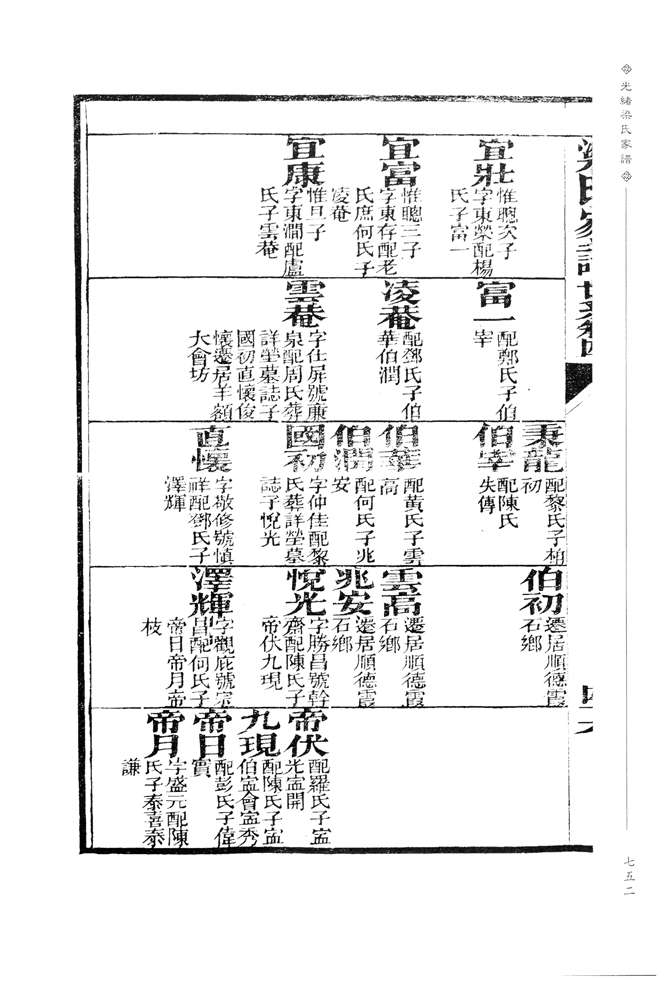 光緒梁氏家譜
梁氏家譜
宜壯
惟聰次子
字東榮配楊
氏子富一
宜富
惟聰三子
字東存配老
氏庶何氏子
凌菴
宜康
惟旦子
字東澗配盧
氏子雲菴
富一
配鄭氏子伯
宰
凌菴
配鄧氏子伯
華伯潤
雲菴
字仕屏號廉
泉配周氏葬
詳塋墓誌子
國初直懷俊
懷遷居羊額
大會坊
秉龍
配黎氏子柏
初
伯宰
配陳氏
失傳
伯華
配黃氏子雲
高
伯潤
配何氏子兆
安
國初
字仲佳配黎
氏葬詳塋墓
誌子悅光
直懷
字敬修號慎
祥配鄧氏子
澤輝
伯初
遷居順德霞
石鄉
雲高
遷居順德霞
石鄉
兆安
遷居順德霞
石鄉
悅光
字勝昌號幹
齋配陳氏子
帝伏九現
澤輝
字觀庇號宗
昌配何氏子
帝日帝月帝
枝
帝伏
配羅氏子宜
光宜開
九現
配陳氏子宜
伯宜會宜秀
帝日
配彭氏子偉
實
帝月
字盛元配陳
氏子泰喜泰
謙
七五二